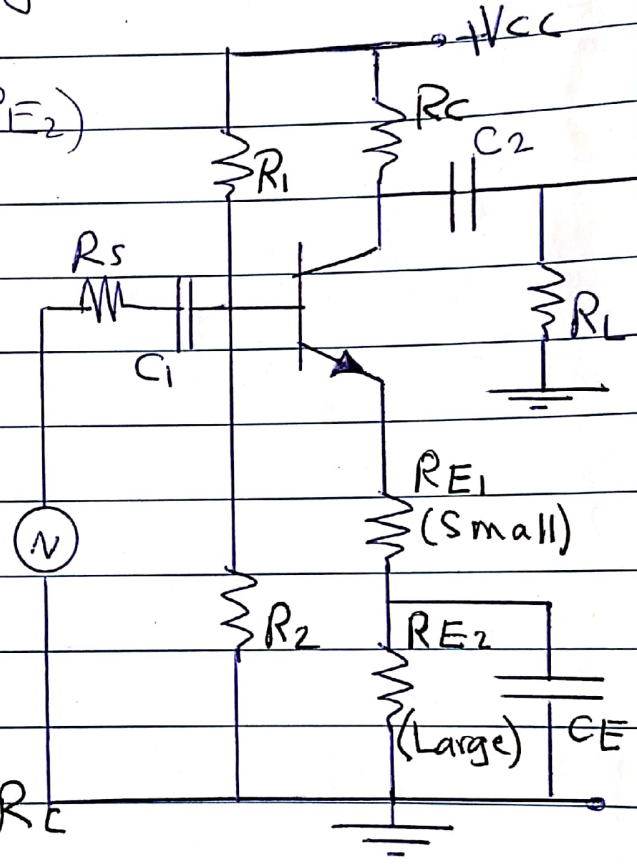 +VCC
RC
E2)
C2
R1
Rs
RL
C1
RE1
(Small)
N
R2
RE2
(Large)
CE
RC